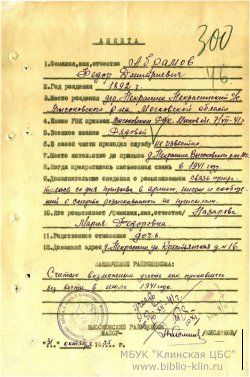 300
46.
АНКЕТА
1. Фамилия, имя, отчество Абрамов
Федор Дмитриевич
2. Год рождения 1892 г.
3. Место рождения дер. Некрасино Некрасинский
Высоковского р-на Московской области
4. Каким РВК призван Высоковским РВК Москов. обл 7/VII-41 г
5. Воинское звание Рядовой
6. В какой части проходил службу не известно
7. Место жительства до призыва д. Некрасино Высоковского р-на М.о.
8. Когда прекратилась письменная связь в 1941 году
9. Дополнительные сведения о розыскиваемом связь прекрат
со дня призыва в армию, писем и сообще
о смерти разыскиваемого не присылали.
10. Кто розыскивает /фамилия, имя, отчество/ Назарова
Мария Федоровна
11. Родственное отношение дочь
12. Домашний адрес д. Некрасино ул. Крестьянская д. №16
ЗАКЛЮЧЕНИЕ РАЙВОЕНКОМА:
Считаю возможным учесть как пропавшего
без вести в 1941 года
ВЫСОКОВСКИЙ РАЙВОЕНКОМ
МАЙОР
октября
МБУК «Клинская ЦБС»
www.biblio-klin.ru